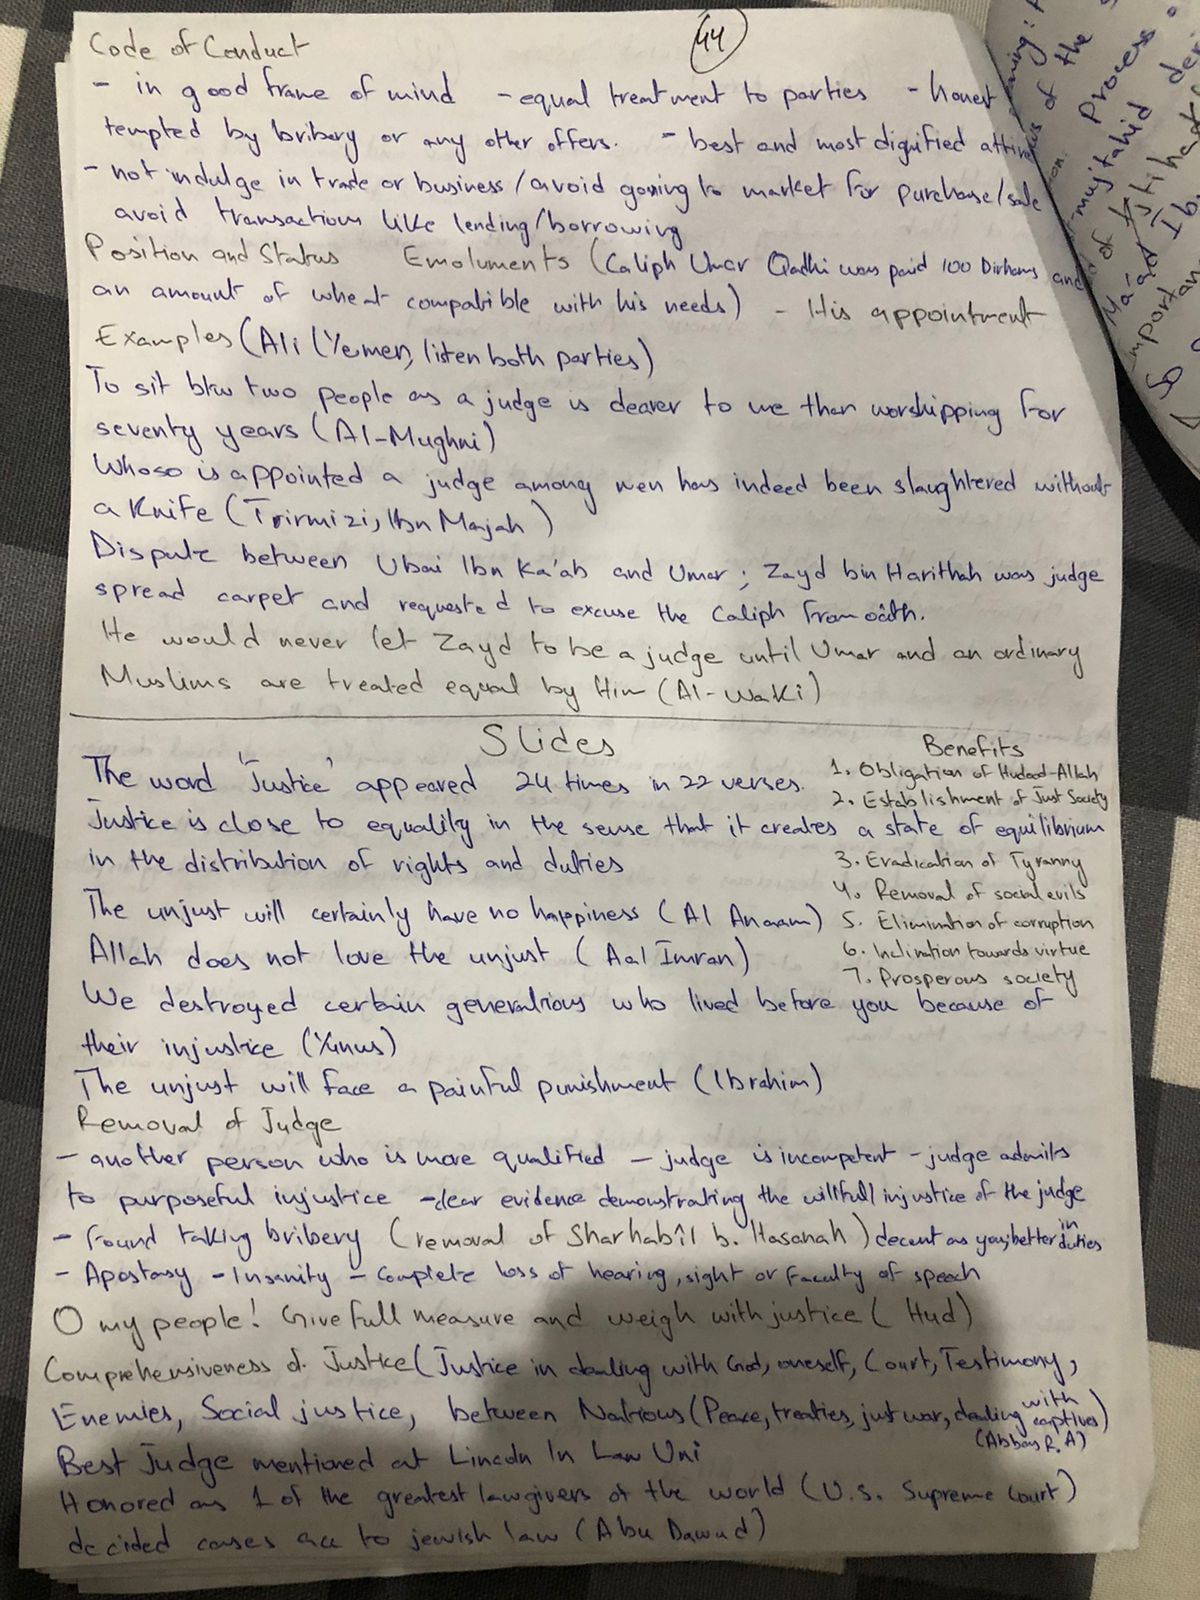 44
Code of Conduct
- in good frame of mind - equal treatment to parties - honest
tempted by bribery or any other offers. - best and most dignified attire
- not indulge in trade or business / avoid going to market for purchase/sale
avoid transactions like lending/borrowing
Position and Status Emoluments (Caliph Umar Qadhi was paid 100 Dirhams and
an amount of wheat compatible with his needs) - His appointment
Examples (Ali (Yemen, listen both parties)
To sit btw two people as a judge is dearer to me than worshipping for
seventy years (Al-Mughni)
Whoso is appointed a judge among men has indeed been slaughtered without
a Knife (Tirmizi, Ibn Majah)
Dispute between Ubai Ibn Ka'ab and Umar; Zayd bin Harithah was judge
spread carpet and requested to excuse the Caliph from oath.
He would never let Zayd to be a judge until Umar and an ordinary
Muslims are treated equal by Him (Al-Waki)
Slides
The word 'Justice' appeared 24 times in 22 verses.
Justice is close to equality in the sense that it creates a state of equilibrium
in the distribution of rights and duties
The unjust will certainly have no happiness (Al Anaam)
Allah does not love the unjust (Aal Imran)
We destroyed certain generations who lived before you because of
their injustice (Yunus)
The unjust will face a painful punishment (Ibrahim)
Benefits
1. Obligation of Hudood-Allah
2. Establishment of Just Society
3. Eradication of Tyranny
4. Removal of social evils
5. Elimination of corruption
6. Inclination towards virtue
7. Prosperous society
Removal of Judge
- another person who is more qualified - judge is incompetent - judge admits
to purposeful injustice - clear evidence demonstrating the willfull injustice of the judge
- Found taking bribery (removal of Sharhabîl b. Hasanah) decent as you, better in duties
- Apostasy - Insanity - Complete loss of hearing, sight or faculty of speech
O my people! Give full measure and weigh with justice (Hud)
Comprehensiveness of Justice (Justice in dealing with God, oneself, Court, Testimony,
Enemies, Social justice, between Nations (Peace, treaties, just war, dealing with captives)
(Abbas R.A)
Best Judge mentioned at Lincoln In Law Uni
Honored as 1 of the greatest lawgivers of the world (U.S. Supreme Court)
decided cases acc to jewish law (Abu Dawud)
of the
Process
mujtahid
Ijtihad
Ma'ad Ib
importan